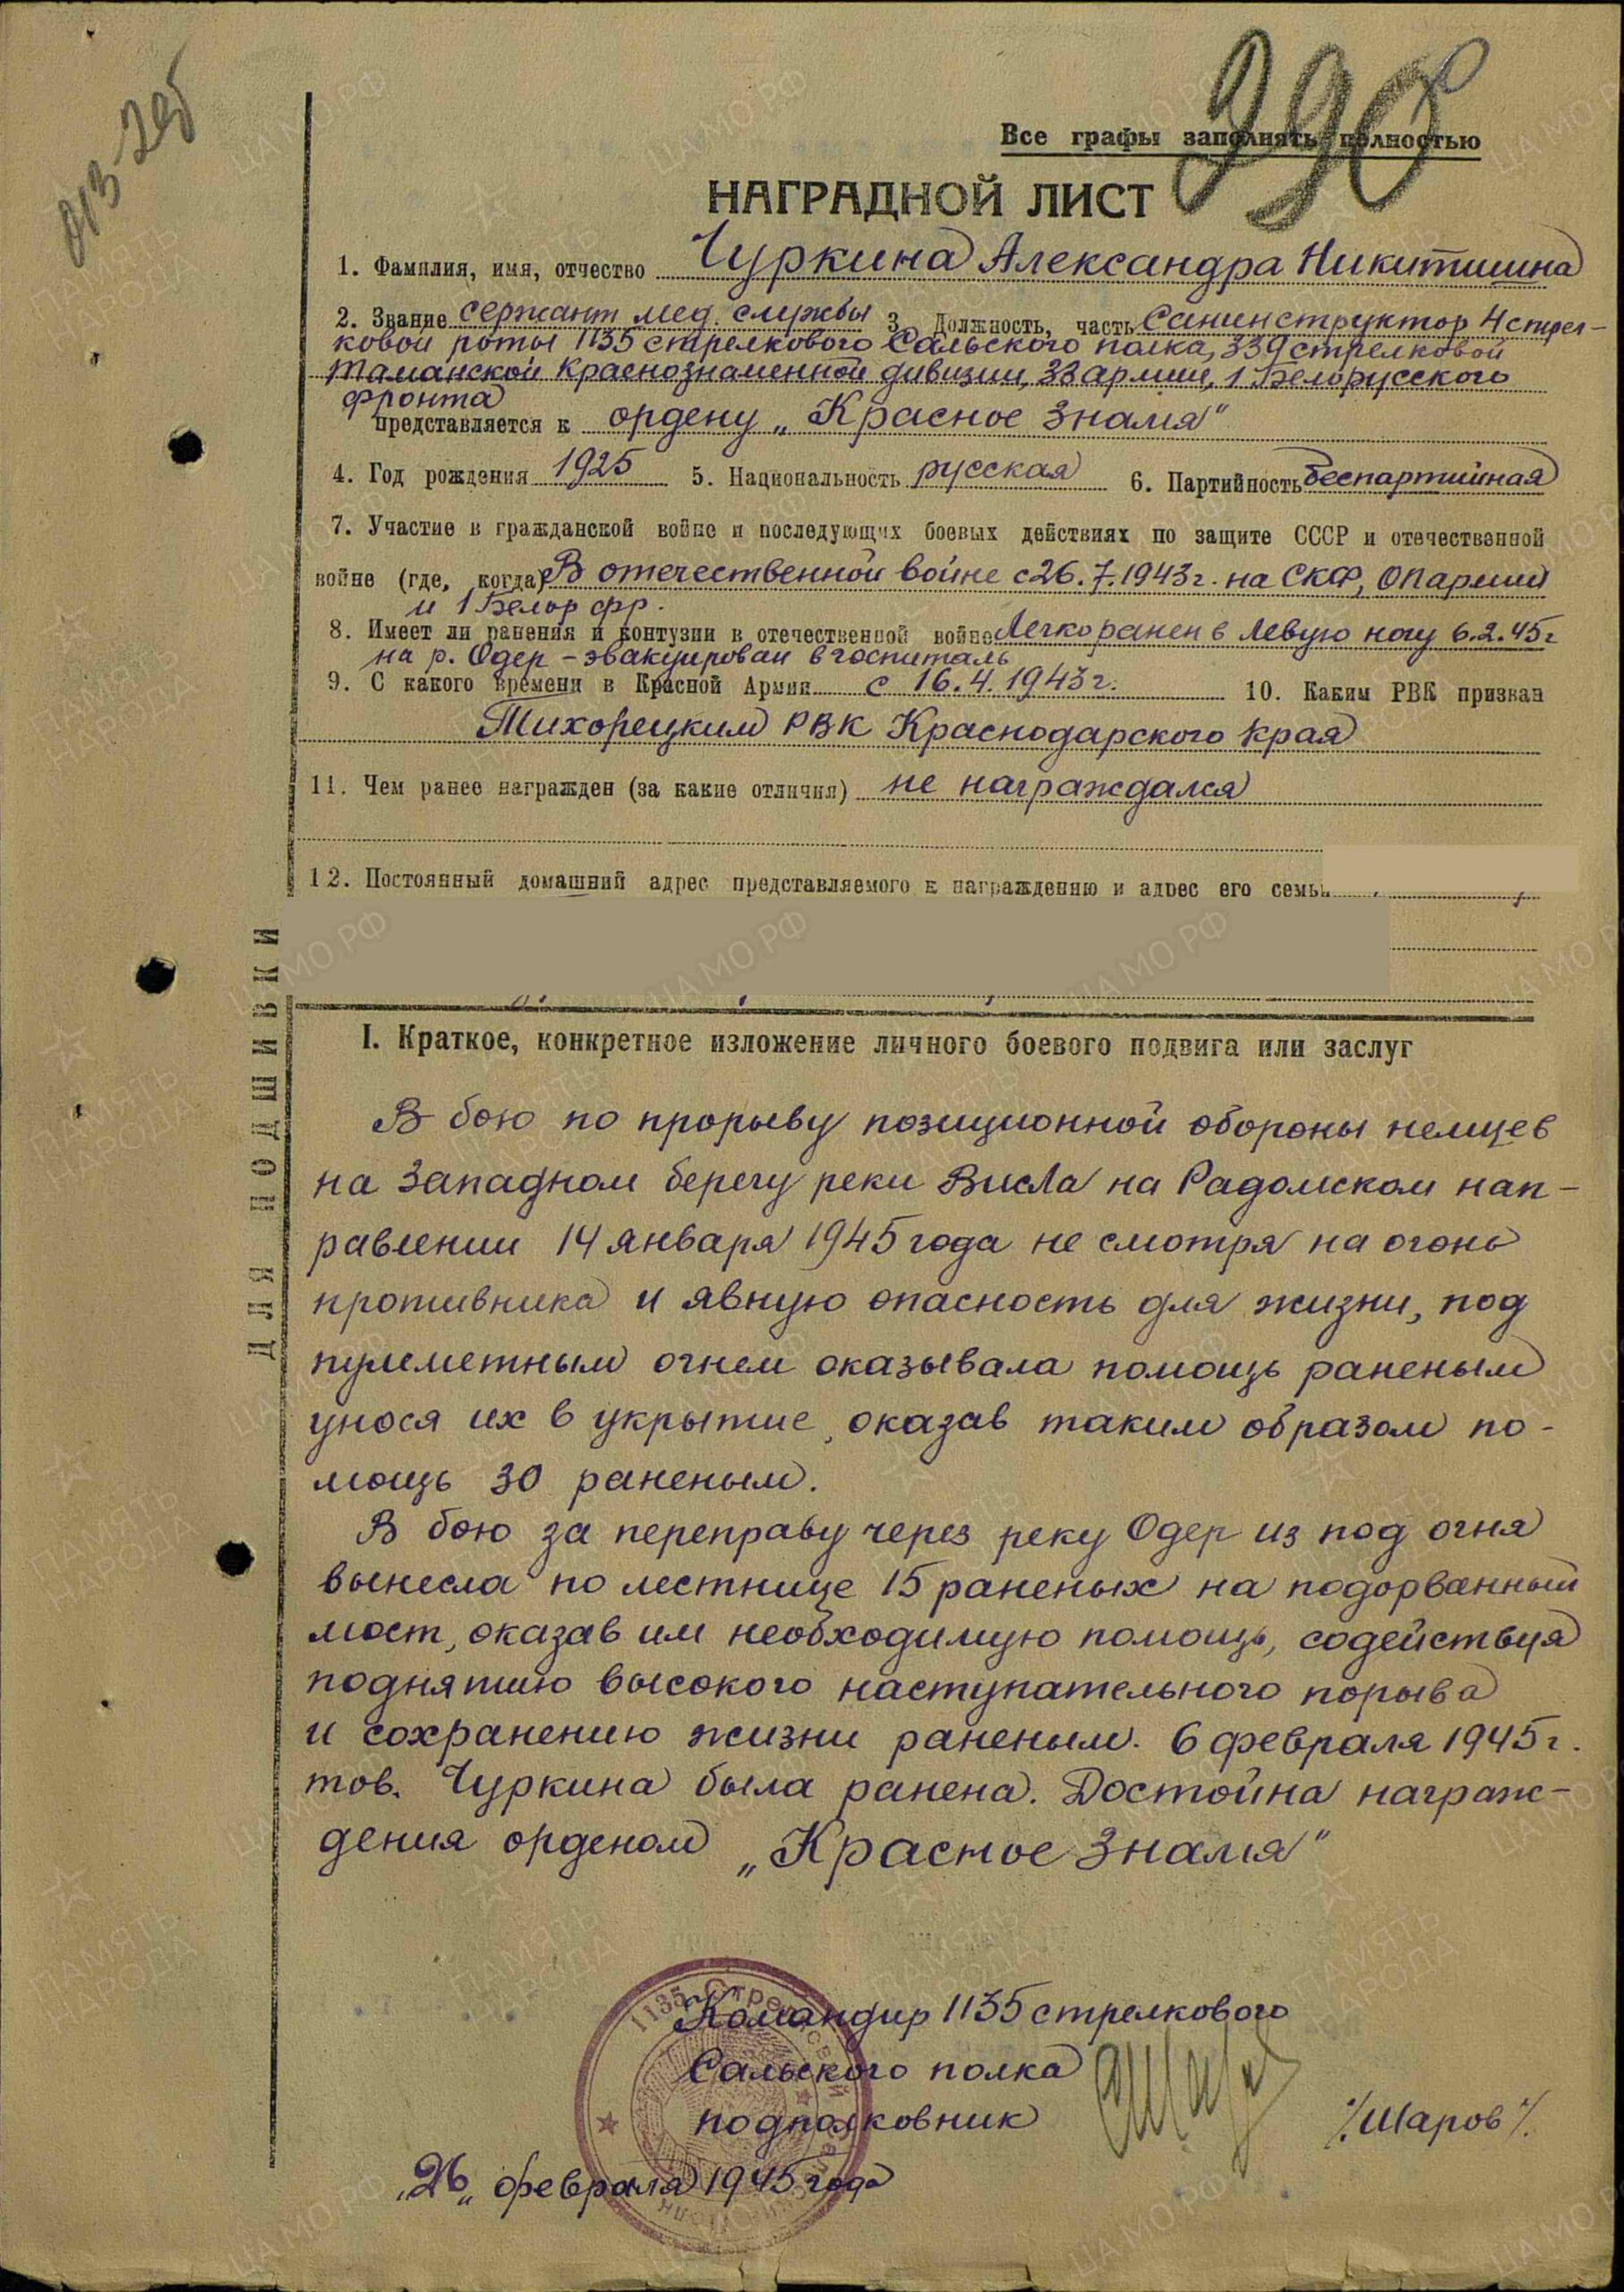 013-295
990
Все графы заполнять полностью
НАГРАДНОЙ ЛИСТ
1. Фамилия, имя, отчество Чуркина Александра Никитишна
2. Звание сержант мед. службы 3. Должность, часть Санинструктор 4 стрел-
ковой роты 1135 стрелкового Сальского полка, 339 стрелковой
Таманской Краснознаменной дивизии, 33 армии, 1 Белорусского
фронта
представляется к ордену „Красное Знамя"
4. Год рождения 1925 5. Национальность русская 6. Партийность беспартийная
7. Участие в гражданской войне и последующих боевых действиях по защите СССР и отечественной
войне (где, когда) В отечественной войне с 26.7.1943г. на СКФ, ОПармии
и 1 Белор фр.
8. Имеет ли ранения и контузии в отечественной войне Легко ранен в левую ногу 6.2.45г
на р. Одер - эвакуирован в госпиталь
9. С какого времени в Красной Армии с 16.4.1943г. 10. Каким РВК призван
Тихорецким РВК Краснодарского края
11. Чем ранее награжден (за какие отличия) не награждался
12. Постоянный домашний адрес представляемого к награждению и адрес его семьи
ДЛЯ ПОДШИВКИ
I. Краткое, конкретное изложение личного боевого подвига или заслуг
В бою по прорыву позиционной обороны немцев
на западном берегу реки Висла на Радомском нап-
равлении 14 января 1945 года не смотря на огонь
противника и явную опасность для жизни, под
пулеметным огнем оказывала помощь раненым
унося их в укрытие, оказав таким образом по-
мощь 30 раненым.
В бою за переправу через реку Одер из под огня
вынесла по лестнице 15 раненых на подорванный
мост, оказав им необходимую помощь, содействуя
поднятию высокого наступательного порыва
и сохранению жизни раненым. 6 февраля 1945г.
тов. Чуркина была ранена. Достойна награж-
дения орденом „Красное Знамя"
Командир 1135 стрелкового
Сальского полка
подполковник /Шаров/.
„26„ февраля 1945 года